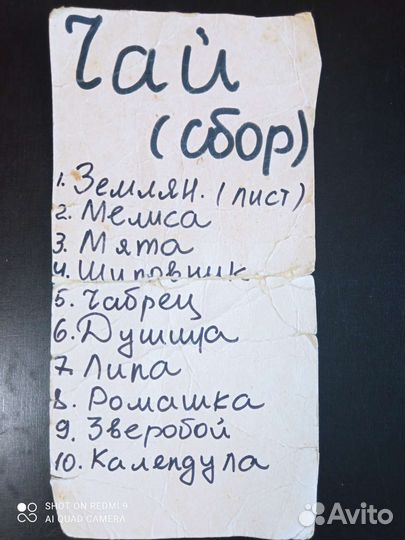 Чай
(сбор)
1. Землян. (лист)
2. Мелиса
3. Мята
4. Шиповник
5. Чабрец
6. Душица
7. Липа
8. Ромашка
9. Зверобой
10. Календула
SHOT ON REDMI 9
AI QUAD CAMERA
Avito